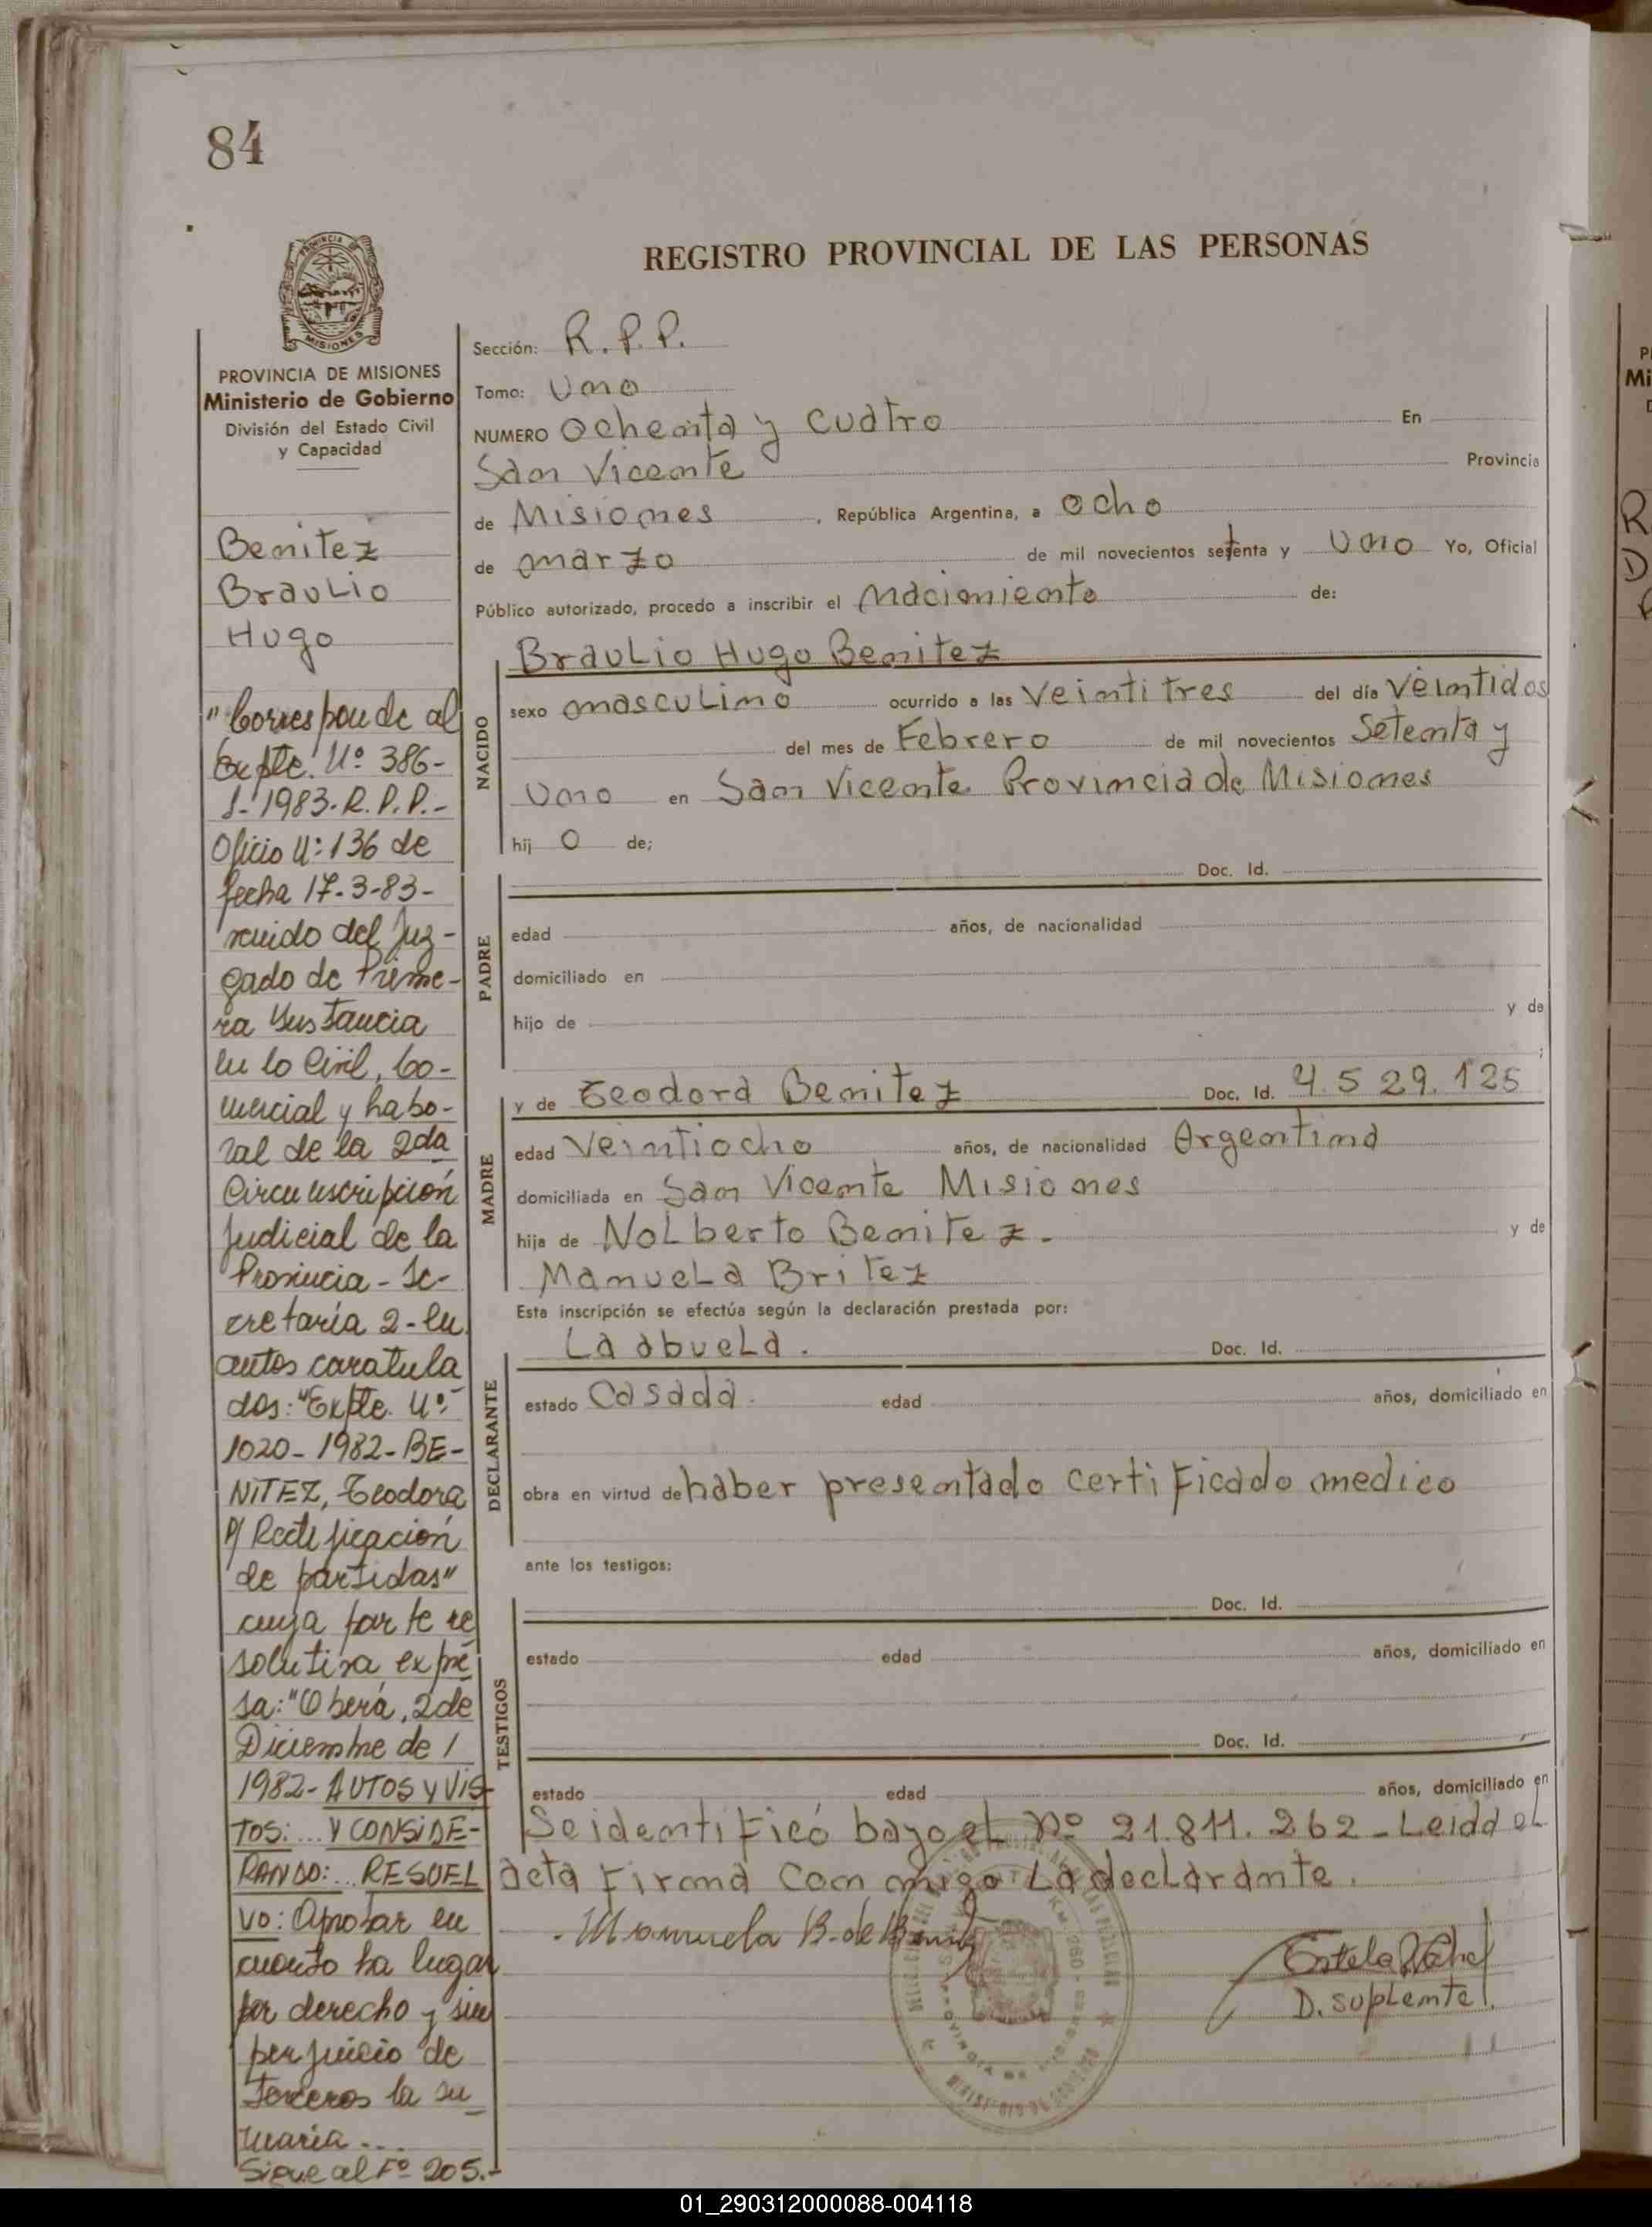 84
REGISTRO PROVINCIAL DE LAS PERSONAS
PROVINCIA DE
MISIONES
PROVINCIA DE MISIONES
Ministerio de Gobierno
División del Estado Civil
y Capacidad
Benitez
Braulio
Hugo
"Corresponde al
Expte. Nº 386-
S-1983-R.P.P.-
Oficio Nº 136 de
fecha 17-3-83-
venido del Juz-
gado de Prime-
ra Instancia
en lo Civil, Co-
mercial y Labo-
ral de la 2da
Circunscripción
Judicial de la
Provincia - Se-
cretaría 2- en
autos caratula
dos: "Expte. Nº
1020-1982-BE-
NITEZ, Teodora
P/ Rectificación
de partidas"
cuya parte re
solutiva expre
sa: "Oberá, 2 de
Diciembre de
1982- AUTOS Y VIS-
TOS: ... Y CONSIDE-
RANDO: ... RESUEL
VO: Aprobar en
cuanto ha lugar
por derecho y sin
perjuicio de
terceros la su_
maria ...
Sigue al Fº 205.-
Sección: R.P.P.
Tomo: Uno
NUMERO Ochenta y cuatro En
San Vicente Provincia
de Misiones , República Argentina, a ocho
de marzo de mil novecientos setenta y Uno Yo, Oficial
Público autorizado, procedo a inscribir el nacimiento de:
Braulio Hugo Benitez
NACIDO
sexo masculino ocurrido a las Veintitres del día Veintidos
del mes de Febrero de mil novecientos Setenta y
Uno en San Vicente Provincia de Misiones
hij o de;
Doc. Id.
PADRE
edad años, de nacionalidad
domiciliado en
hijo de y de
;
y de Teodora Benitez Doc. Id. 4.529.125
MADRE
edad Veintiocho años, de nacionalidad Argentina
domiciliada en San Vicente Misiones
hija de Nolberto Benitez. y de
Manuela Britez
Esta inscripción se efectúa según la declaración prestada por:
La abuela. Doc. Id.
DECLARANTE
estado Casada. edad años, domiciliado en
obra en virtud de haber presentado certificado medico
ante los testigos:
Doc. Id.
TESTIGOS
estado edad años, domiciliado en
Doc. Id.
estado edad años, domiciliado en
Se identificó bajo el nº 21.811.262 - Leida el
acta Firma con migo La declarante.
Manuela B. de
Estela
D. suplente
01_290312000088-004118